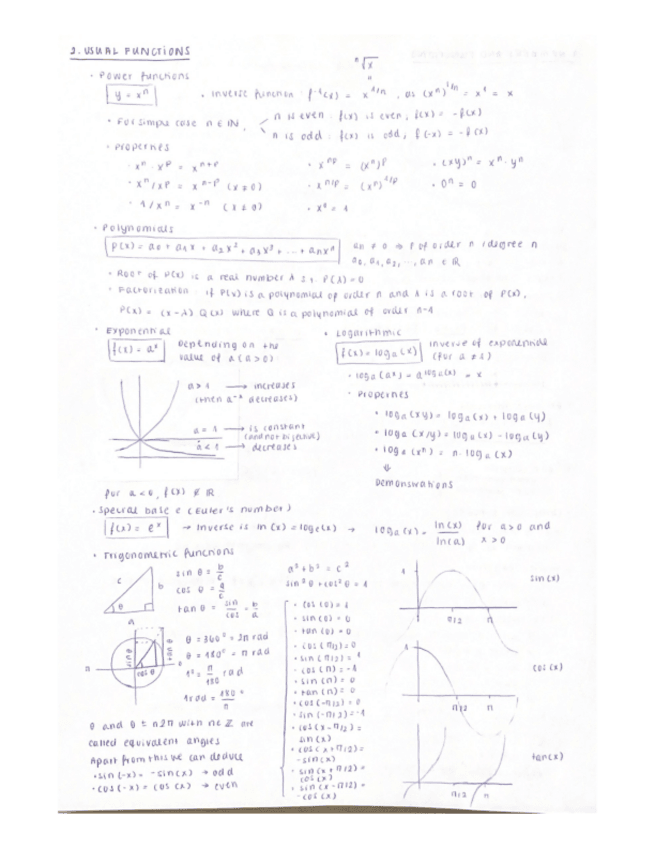 2. USUAL FUNCTIONS
• Power functions
ⁿ√x
n
y = xⁿ
• Inverse function: f⁻¹(x) = x^1/n, as (xⁿ)^1/n = x¹ = x
• For simple case n ∈ ℕ,
n is even: f(x) is even, f(x) = -f(x)
n is odd: f(x) is odd, f(-x) = -f(x)
• Properties
• xⁿ · x^p = x^n+p • x^np = (xⁿ)^p • (xy)ⁿ = xⁿ · yⁿ
• xⁿ/x^p = x^n-p (x ≠ 0) • x^n/p = (xⁿ)^1/p • 0ⁿ = 0
• 1/xⁿ = x⁻ⁿ (x ≠ 0) • x⁰ = 1
• Polynomials
P(x) = a₀ + a₁x + a₂x² + a₃x³ + ... + aₙxⁿ
an ≠ 0 ⇒ P of order n / degree n
a₀, a₁, a₂, ..., an ∈ ℝ
• Root of P(x) is a real number λ s.t. P(λ)=0
• Factorization: if P(x) is a polynomial of order n and λ is a root of P(x),
P(x) = (x-λ) Q(x) where Q is a polynomial of order n-1
• Exponential
f(x) = aˣ
Depending on the
value of a (a>0)
a > 1 → increases
(then a⁻ˣ decreases)
a = 1 → is constant
(and not bijective)
a < 1 → decreases
for a < 0, f(x) ∉ ℝ
• Logarithmic
f(x) = logₐ(x)
inverse of exponential
(for a ≠ 1)
• logₐ(aˣ) = a^logₐ(x) = x
• Properties
• logₐ(xy) = logₐ(x) + logₐ(y)
• logₐ(x/y) = logₐ(x) - logₐ(y)
• logₐ(xⁿ) = n·logₐ(x)
⇓
Demonstrations
• Special base e (Euler's number)
f(x) = eˣ → Inverse is ln(x) = logₑ(x) → logₐ(x) = ln(x)/ln(a) for a>0 and
x>0
• Trigonometric functions
c
b
θ
A
sin θ = b/c
cos θ = a/c
tan θ = sin/cos = b/a
a² + b² = c²
sin²θ + cos²θ = 1
sin θ
cos θ
tan θ
π
θ = 360° = 2π rad
θ = 180° = π rad
1° = π/180 rad
1 rad = 180°/π
θ and θ ± n2π with n∈ℤ are
called equivalent angles
Apart from this we can deduce
• sin(-x) = -sin(x) → odd
• cos(-x) = cos(x) → even
• cos(0)=1
• sin(0)=0
• tan(0)=0
• cos(π/2)=0
• sin(π/2)=1
• cos(π)=-1
• sin(π)=0
• tan(π)=0
• cos(-π/2)=0
• sin(-π/2)=-1
• cos(x-π/2)=
sin(x)
• cos(x+π/2)=
-sin(x)
• sin(x+π/2)=
cos(x)
• sin(x-π/2)=
-cos(x)
1
π/2 π
sin(x)
1
π/2 π
cos(x)
π/2 π
tan(x)